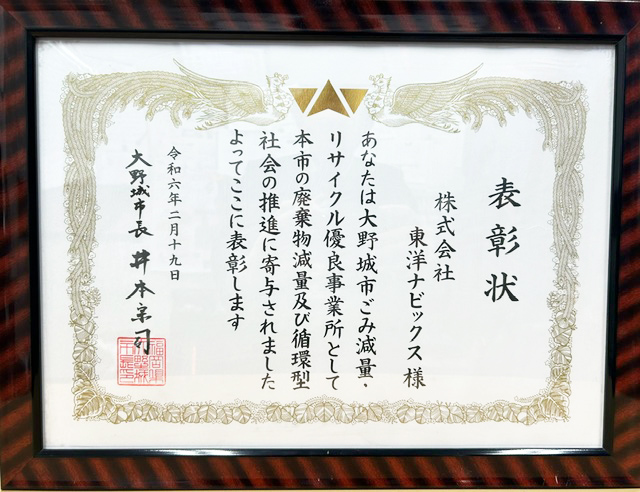 表彰状
株式会社
東洋ナビックス 様
あなたは大野城市ごみ減量・
リサイクル優良事業所として
本市の廃棄物減量及び循環型
社会の推進に寄与されました
よってここに表彰します
令和六年二月十九日
大野城市長 井本宗司